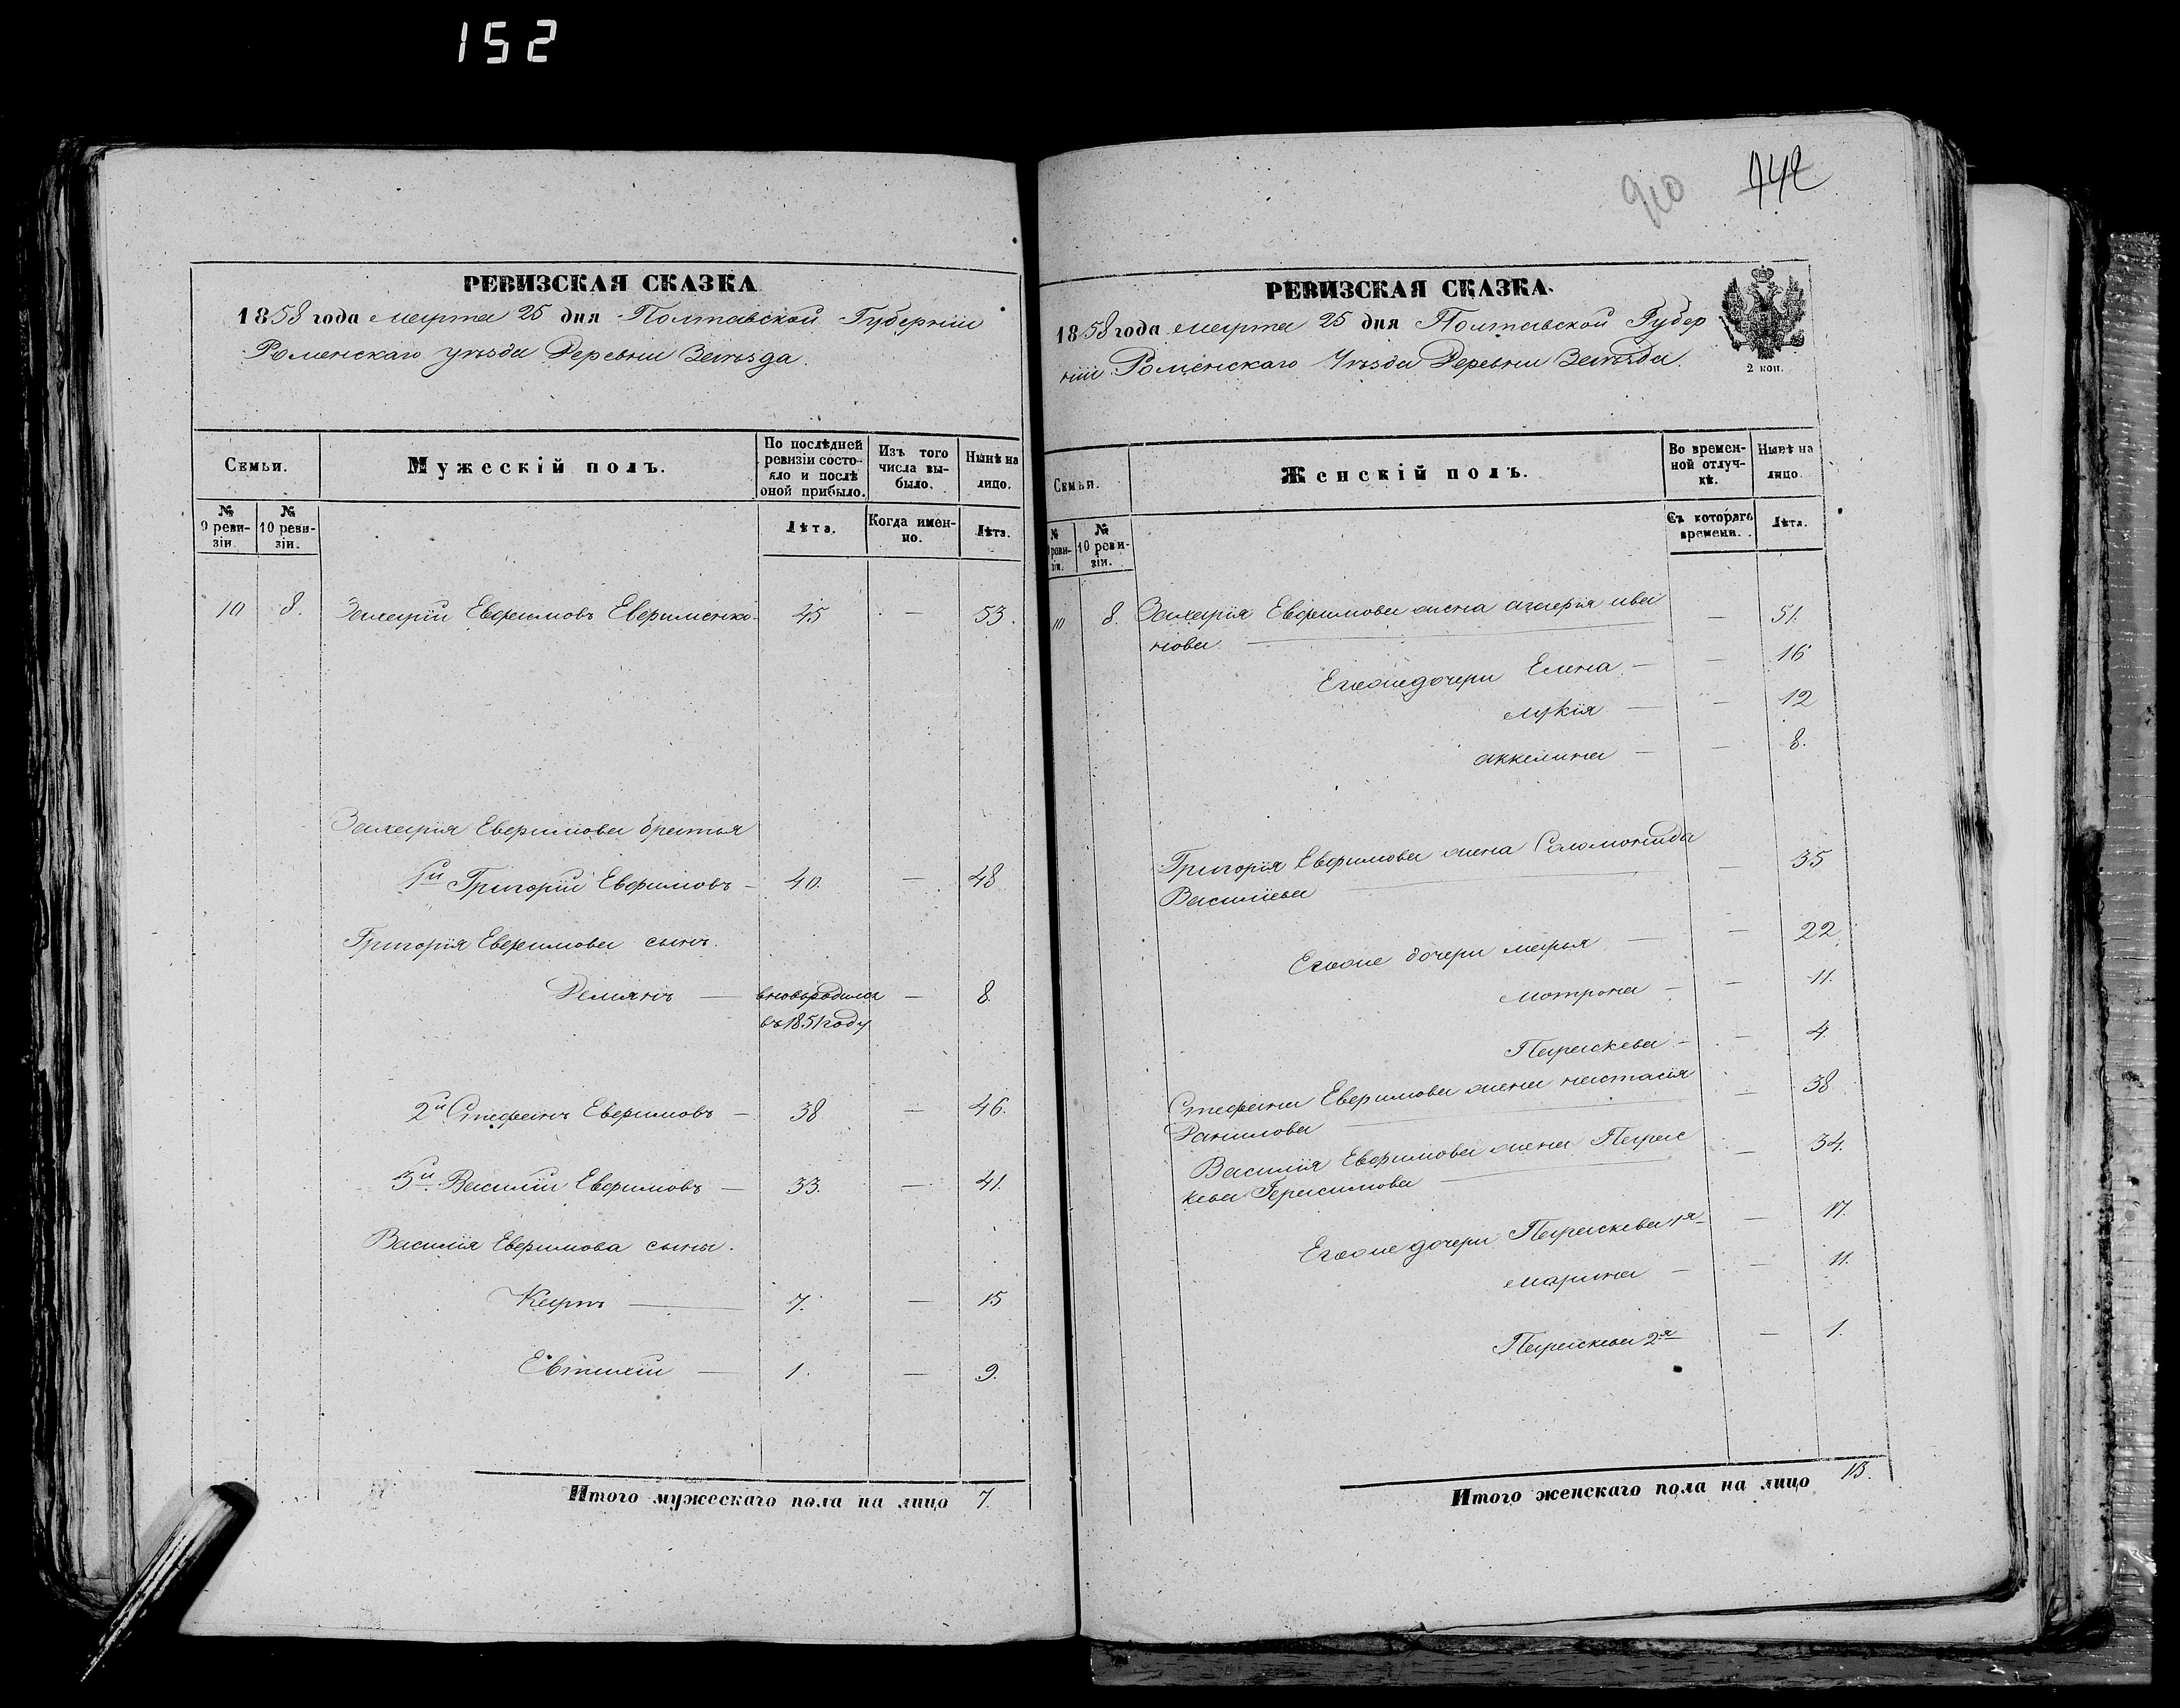 152
910 142
РЕВИЗСКАЯ СКАЗКА
1858 года марта 25 дня Полтавской Губернии
Роменскаго уѣзда Деревни Заѣзда.
Семьи.
Мужескій полъ.
По послѣдней ревизіи состояло и послѣ оной прибыло.
Изъ того числа выбыло.
Нынѣ на лицо.
№ 9 ревизіи.
№ 10 ревизіи.
Лѣта.
Когда именно.
Лѣта.
10 8. Захарій Евфимовъ Евфименко 45 — 53.
Захарія Евфимова братья
1й Григорій Евфимовъ — 40. — 48
Григорія Евфимова сынъ.
Демянъ — вновьродился — 8.
въ 1851 году
2й Стефанъ Евфимовъ — 38 — 46.
3й Василій Евфимовъ — 33. — 41.
Василія Евфимова сыны.
Карпъ — 7. — 15
Евтихій — 1. — 9.
Итого мужескаго пола на лицо 7
РЕВИЗСКАЯ СКАЗКА.
1858 года марта 25 дня Полтавской Губер
ніи Роменскаго Уѣзда Деревни Заѣзда.
2 коп.
Семьи.
Женскій полъ.
Во временной отлучкѣ.
Нынѣ на лицо.
№ 9 ревизіи.
№ 10 ревизіи.
Съ котораго времени.
Лѣта.
10 8. Захарія Евфимова жена агафія ива — 51.
нова —
Егоже дочери Елена — — 16
Лукія — — 12
аккилина — — 8.
Григорія Евфимова жена Соломонида — 35
Васильева
Егоже дочери марья — — 22
мотрона — — 11.
Параскева — — 4.
Стефана Евфимова жена настасія — 38
Данилова —
Василія Евфимова жена Парас — 34.
кева Герасимова —
Егоже дочери Параскева 1я — 17.
марина — — 11.
Параскева 2я — 1.
Итого женскаго пола на лицо 13.